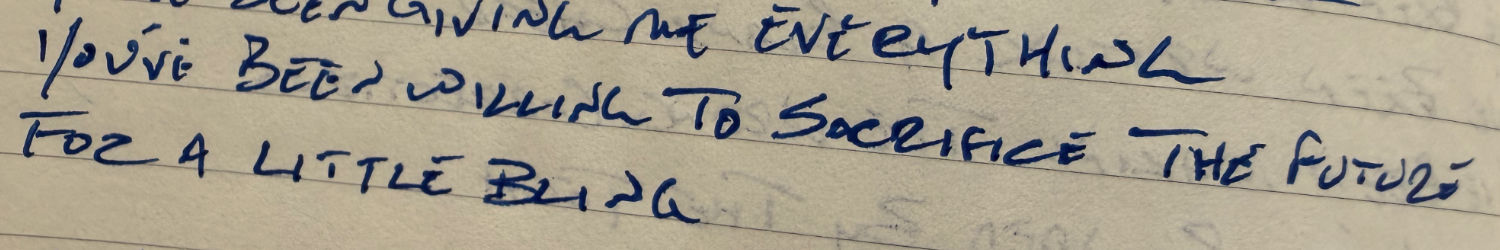 BEEN GIVING ME EVERYTHING
YOU'VE BEEN WILLING TO SACRIFICE THE FUTURE
FOR A LITTLE BLING